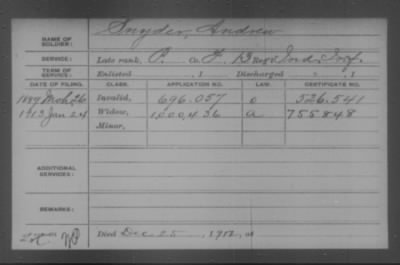 NAME OF SOLDIER: Snyder, Andrew
SERVICE: Late rank, P. Co. F, 13 Reg't Ind. Inf.
TERM OF SERVICE: Enlisted , 1 Discharged , 1
DATE OF FILING. CLASS. APPLICATION NO. LAW. CERTIFICATE NO.
1889 Mch 26 Invalid, 696.057 o 526.541
1913 Jan 24 Widow, 1,000,436 a 755848
Minor,
ADDITIONAL SERVICES:
REMARKS:
Died Dec 25, 1912, at